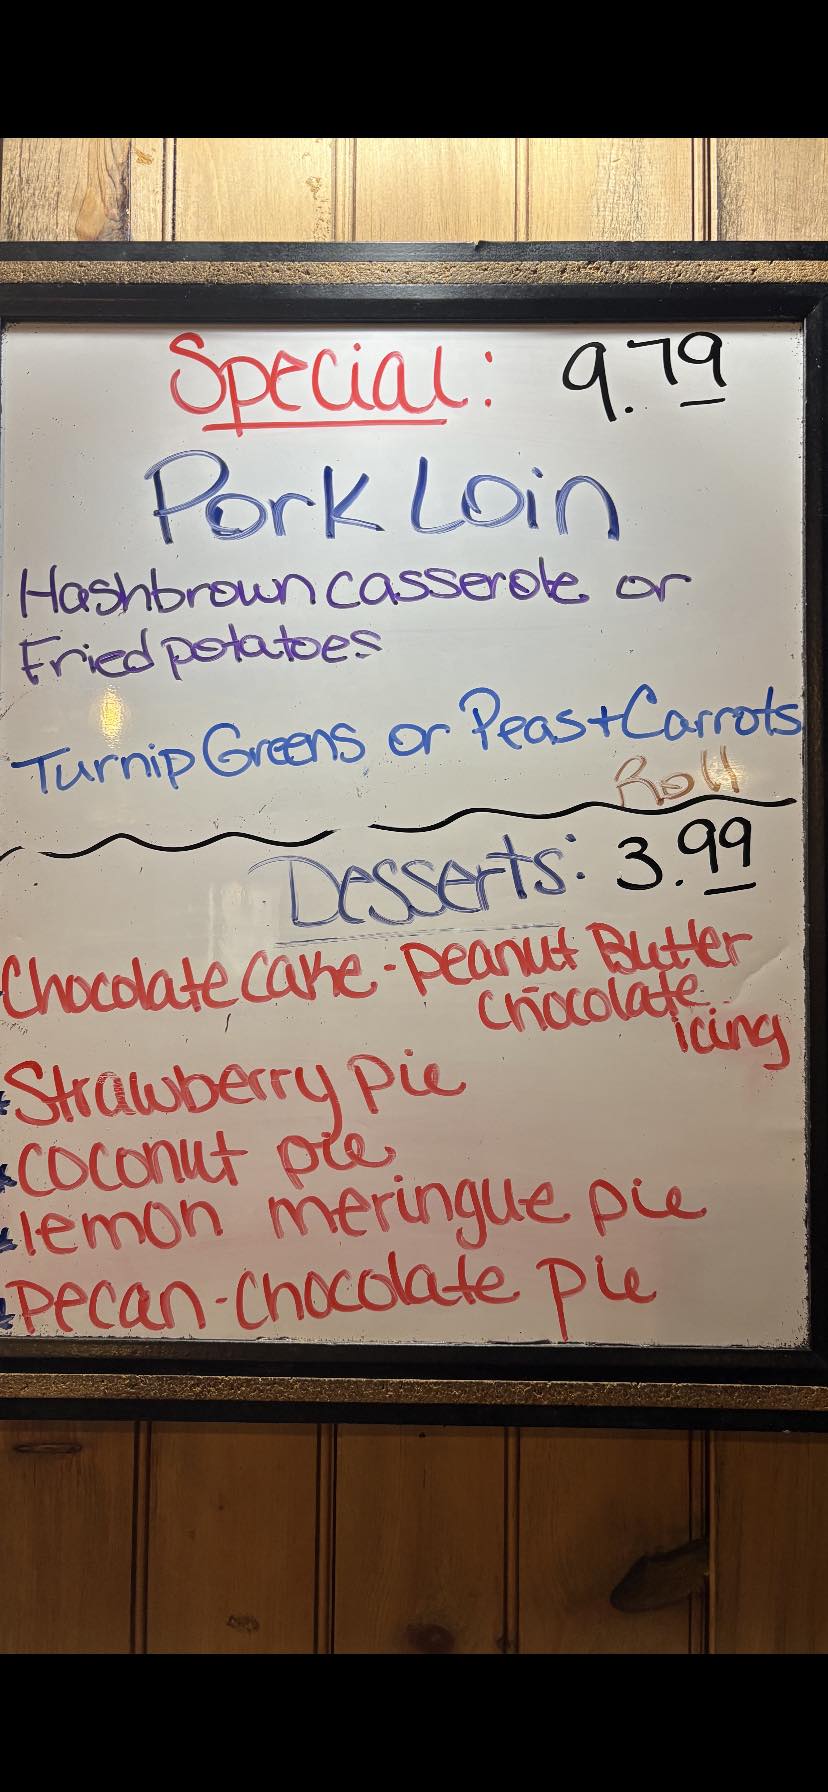 Special: 9.79
Pork Loin
Hashbrown casserole or
Fried potatoes
Turnip Greens or Peas + Carrots
Roll
Desserts: 3.99
Chocolate Cake - Peanut Butter
chocolate
icing
*Strawberry pie
*coconut pie
*lemon meringue pie
*pecan-chocolate pie